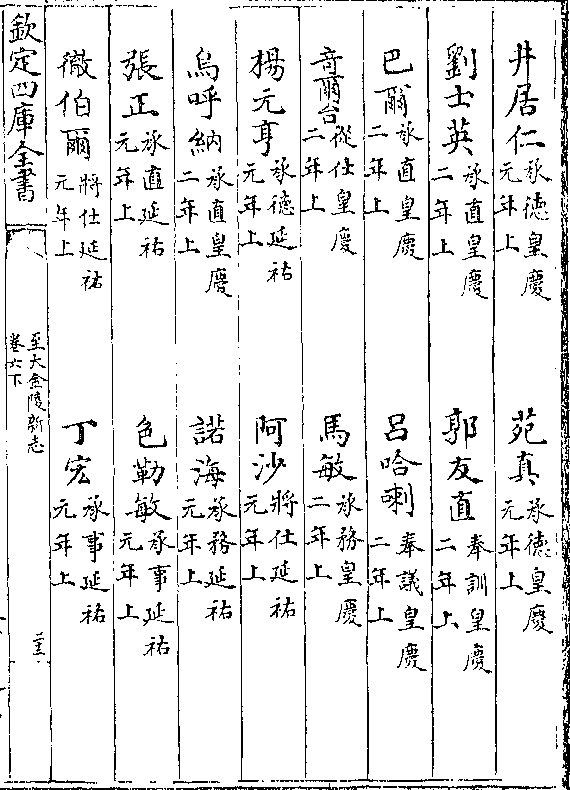 井居仁 承德皇慶元年上 苑真 承德皇慶元年上
劉士英 承直皇慶二年上 郭友直 奉訓皇慶二年上
巴爾 承直皇慶二年上 呂哈喇 奉議皇慶二年上
音爾台 從仕皇慶二年上 馬敏 承務皇慶二年上
楊元亨 承德延祐元年上 阿沙 將仕延祐元年上
烏呼納 承直皇慶二年上 諾海 承務延祐元年上
張正 承直延祐元年上 色勒敏 承事延祐元年上
徹伯爾 將仕延祐元年上 丁宏 承事延祐元年上
欽定四庫全書 至大金陵新志卷六下